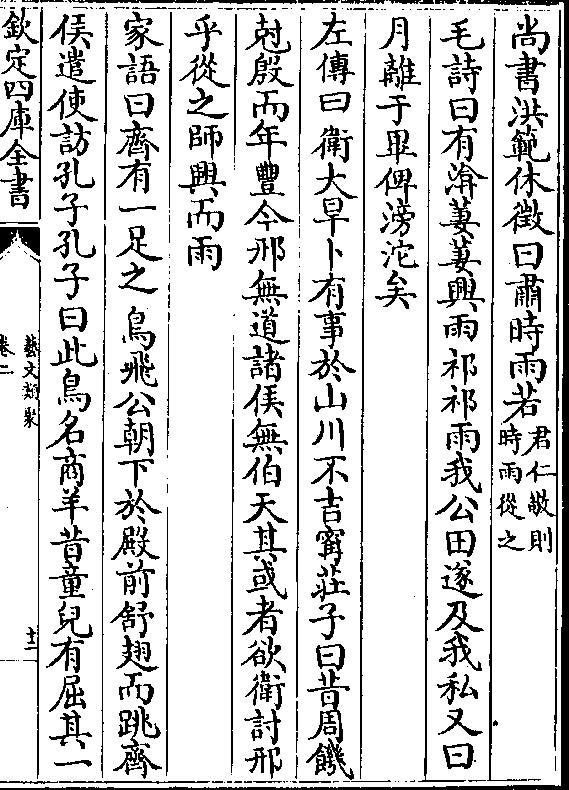 尚書洪範休徴曰肅時雨若君仁敬則
時雨從之
毛詩曰有渰萋萋興雨祁祁雨我公田遂及我私又曰
月離于畢俾滂沱矣
左傳曰衛大旱卜有事於山川不吉甯莊子曰昔周饑
尅殷而年豐今邢無道諸侯無伯天其或者欲衛討邢
乎從之師興而雨
家語曰齊有一足之鳥飛公朝下於殿前舒翅而跳齊
侯遣使訪孔子孔子曰此鳥名商羊昔童兒有屈其一
欽定四庫全書
藝文類聚
卷二
十二